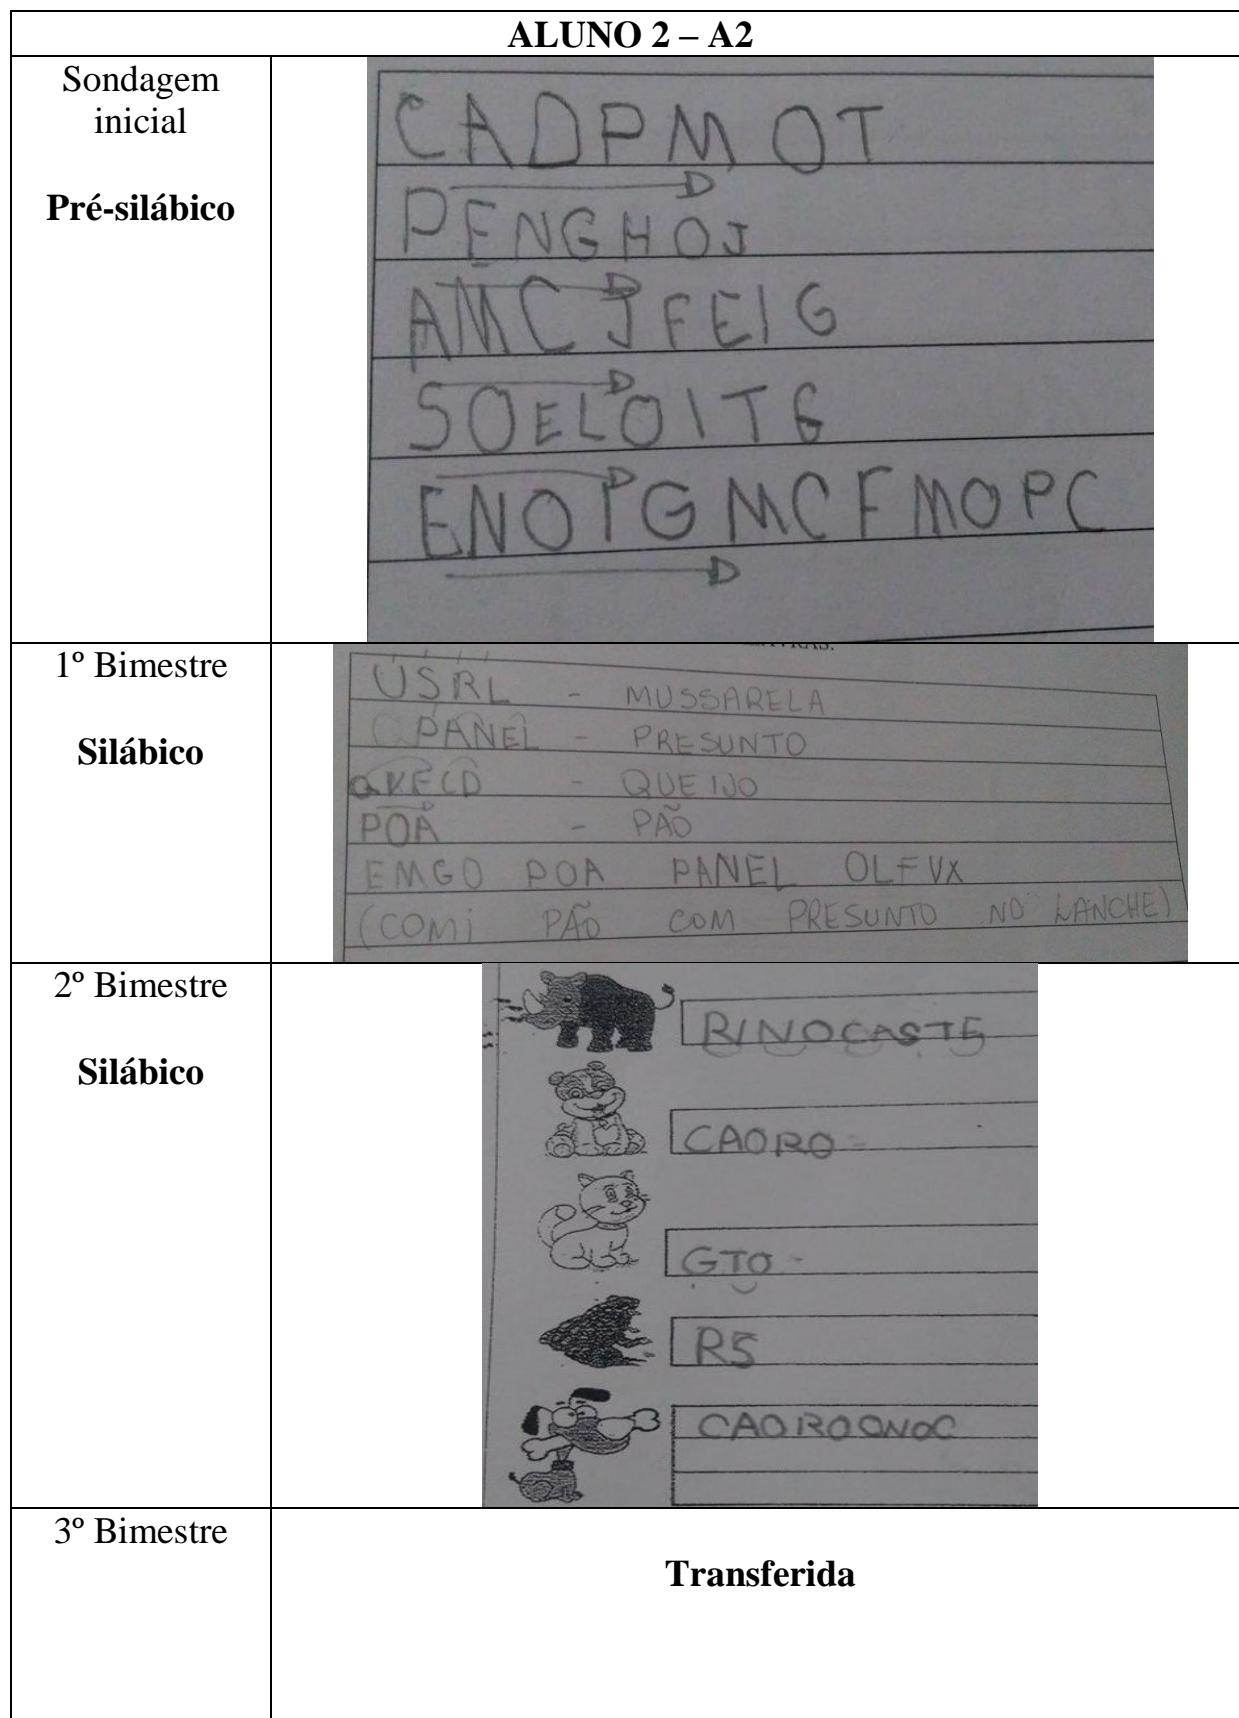 ALUNO 2 – A2
Sondagem
inicial
Pré-silábico
CADPMOT
PENGHOJ
AMCJFEIG
SOELOITG
ENOTGMCFMOPC
1º Bimestre
Silábico
USRL - MUSSARELA
PANEL - PRESUNTO
- QUEIJO
POA - PÃO
EMGO POA PANEL OLFVX
(COMi PÃO COM PRESUNTO NO LANCHE)
2º Bimestre
Silábico
RINOCASTE
CAORO
GTO
RS
CAOROONOC
3º Bimestre
Transferida